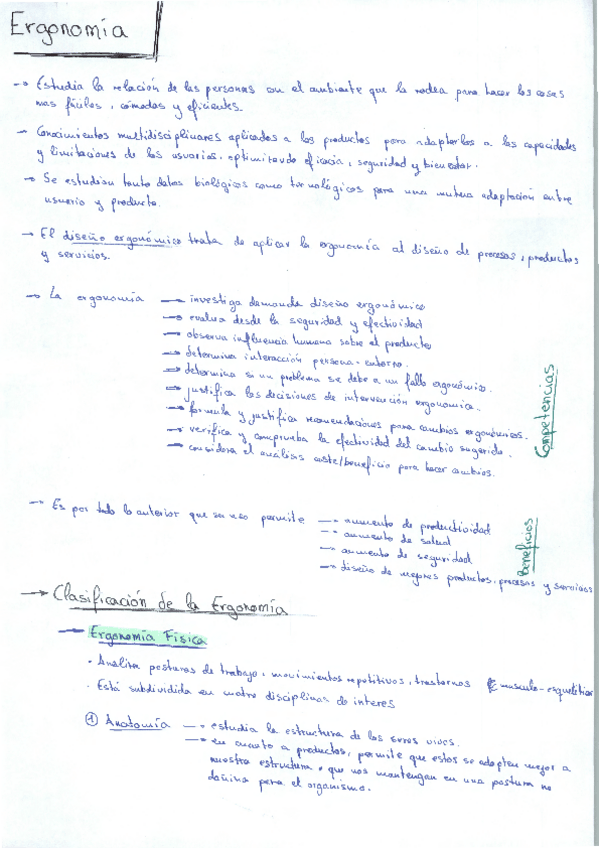 Ergonomía
→ Estudia la relación de las personas con el ambiente que la rodea para hacer las cosas
mas fáciles, cómodas y eficientes.
→ Conocimientos multidisciplinares aplicados a los productos para adaptarlos a las capacidades
y limitaciones de los usuarios, optimizando eficacia, seguridad y bienestar.
→ Se estudian tanto datos biológicos como tecnológicos para una mutua adaptación entre
usuario y producto.
→ El diseño ergonómico trata de aplicar la ergonomía al diseño de procesos, productos
y servicios.
→ La ergonomía → investiga demanda diseño ergonómico
→ evalua desde la seguridad y efectividad
→ observa influencia humana sobre el producto
→ determina interacción persona-entorno.
→ determina si un problema se debe a un fallo ergonómico.
→ justifica las decisiones de intervención ergonomica.
→ formula y justifica recomendaciones para cambios ergonómicos.
→ verifica y comprueba la efectividad del cambio sugerido.
→ considera el análisis coste/beneficio para hacer cambios.
Competencias
→ Es por todo lo anterior que su uso permite → aumento de productividad
→ aumento de salud
→ aumento de seguridad
→ diseño de mejores productos, procesos y servicios
Beneficios
→ Clasificación de la Ergonomía
→ Ergonomía Física
· Analiza posturas de trabajo, movimientos repetitivos, trastornos musculo-esqueléticos
· Está subdividida en cuatro disciplinas de interes
① Anatomía → estudia la estructura de los seres vivos.
→ en cuanto a productos, permite que estos se adapten mejor a
nuestra estructura y que nos mantengan en una postura no
dañina para el organismo.